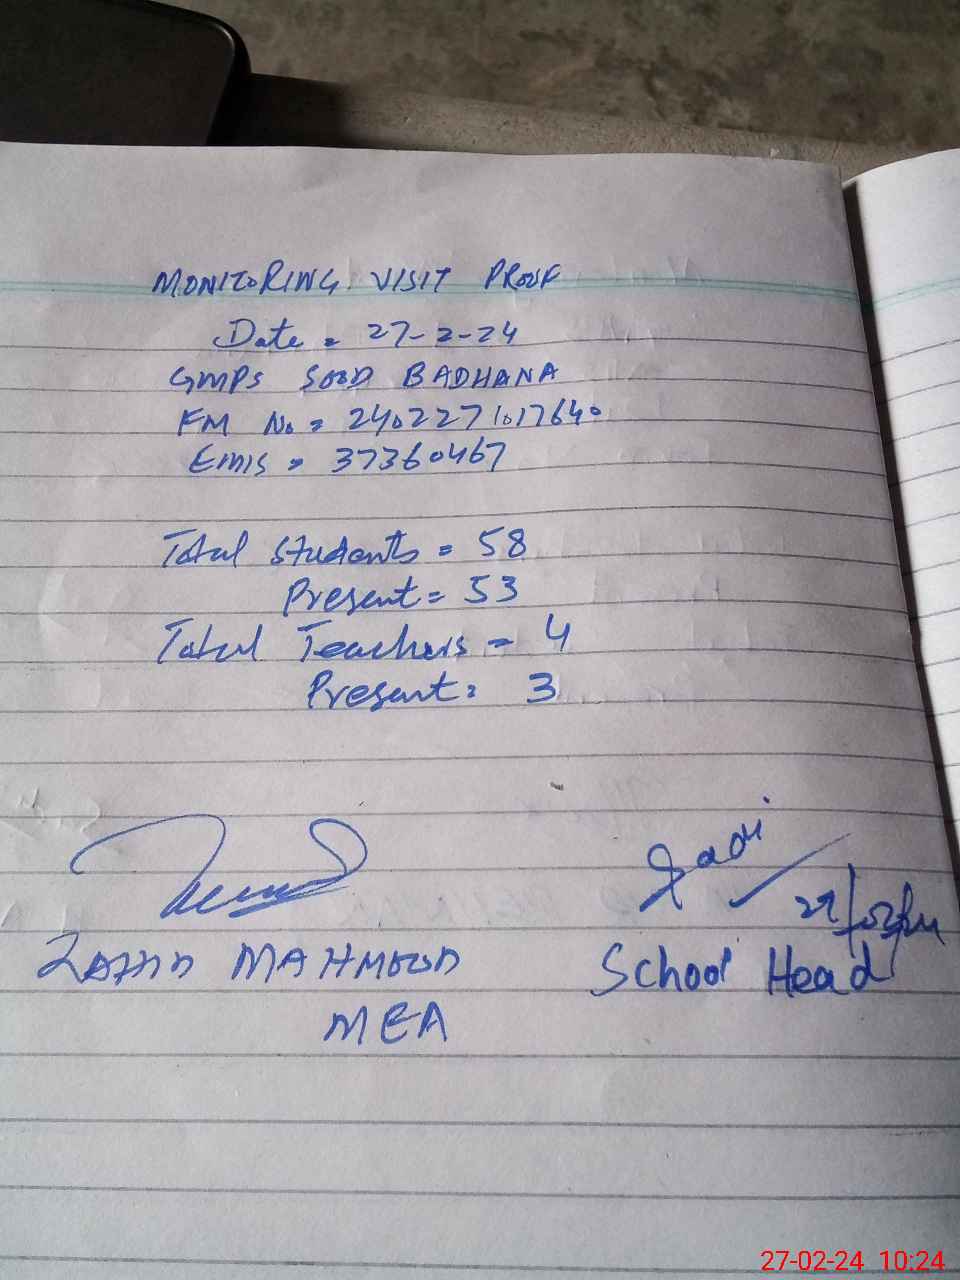 MONITORING VISIT PROOF
Date = 27-2-24
GMPS SOOD BADHANA
FM No = 2402271017640
Emis = 37360467
Total Students = 58
Present = 53
Total Teachers = 4
Present = 3
MAHMOOD
MEA
School Head
27-02-24 10:24